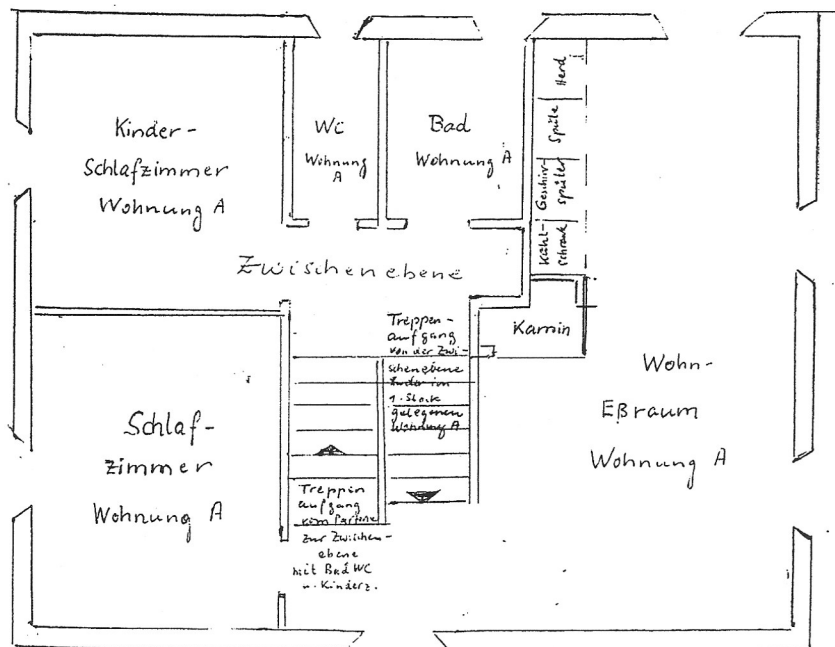 Kinder-
Schlafzimmer
Wohnung A
WC
Wohnung
A
Bad
Wohnung A
Herd
Spüle
Geschirr-
spüler
Kühl-
schrank
Zwischenebene
Treppen-
aufgang
von der Zwi-
schenebene
im
1. Stock
gelegenen
Wohnung A
Kamin
Wohn-
Eßraum
Wohnung A
Schlaf-
zimmer
Wohnung A
Treppen
aufgang
vom
zur Zwischen-
ebene
mit Bad WC
u. Kinderz.